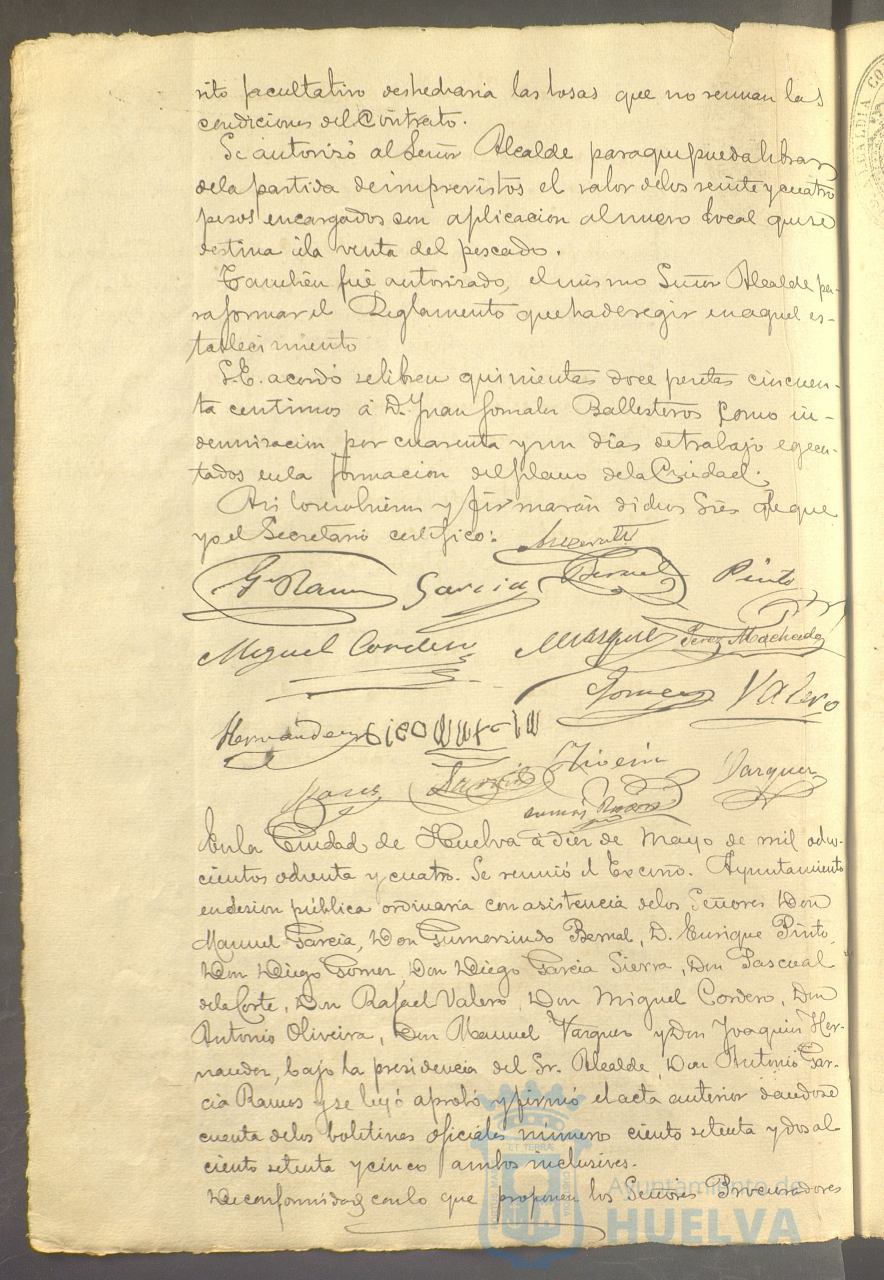 rito facultativo deshecharia las losas que no reunan las
condiciones del Contrato.
Se autorizó al Señor Alcalde para que pueda librar
de la partida de imprevistos el valor de los veinte y cuatro
pesos encargados con aplicacion al nuevo local que se
destina á la venta del pescado.
Tambien fué autorizado, el mismo Señor Alcalde pa-
ra formar el Reglamento que ha de regir en aquel es-
tablecimiento
S.E. acordó se libren quinientas doce pesetas cincuen-
ta centimos á D. Juan Gonzalez Ballesteros como in-
demnizacion por cuarenta y un dias de trabajo egecu-
tados en la formacion del plano de la Ciudad.
Asi lo resolvieron y firmarán dichos Sres de que
yo el Secretario certifico:
G. Ramos Garcia Bernal Pinto
Miguel Cordero Vazquez Perez Machado
Gomez Valero
Hernandez
Garcia Oliveira Vazquez
En la Ciudad de Huelva á diez de Mayo de mil ocho-
cientos ochenta y cuatro. Se reunió el Excmo. Ayuntamiento
en sesion pública ordinaria con asistencia de los Señores Don
Manuel Garcia, Don Gumersindo Bernal, D. Enrique Pinto,
Don Diego Gomez, Don Diego Garcia Sierra, Don Pascual
de la Corte, Don Rafael Valero, Don Miguel Cordero, Don
Antonio Oliveira, Don Manuel Vazquez y Don Joaquin Her-
nandez, bajo la presidencia del Sr. Alcalde, Don Antonio Gar-
cia Ramos y se leyó aprobó y firmó el acta anterior dandose
cuenta de los boletines oficiales numero ciento setenta y dos al
ciento setenta y cinco ambos inclusives.
De conformidad con lo que proponen los Señores Procuradores
Ayuntamiento de
HUELVA